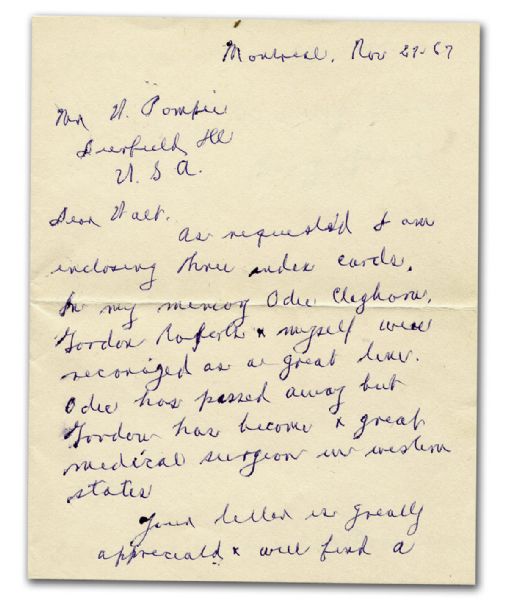 Montreal, Nov 27-67
Mr W. Pompie
Deerfield, Ill
U. S. A.
Dear Walt.
As requested I am
inclosing three index cards.
In my memory Odie Cleghorn,
Gordon Roberts & myself were
reconized as a great line.
Odie has passed away but
Gordon has become a great
medical surgeon in western
states
Your letter is greatly
appreciated & will find a